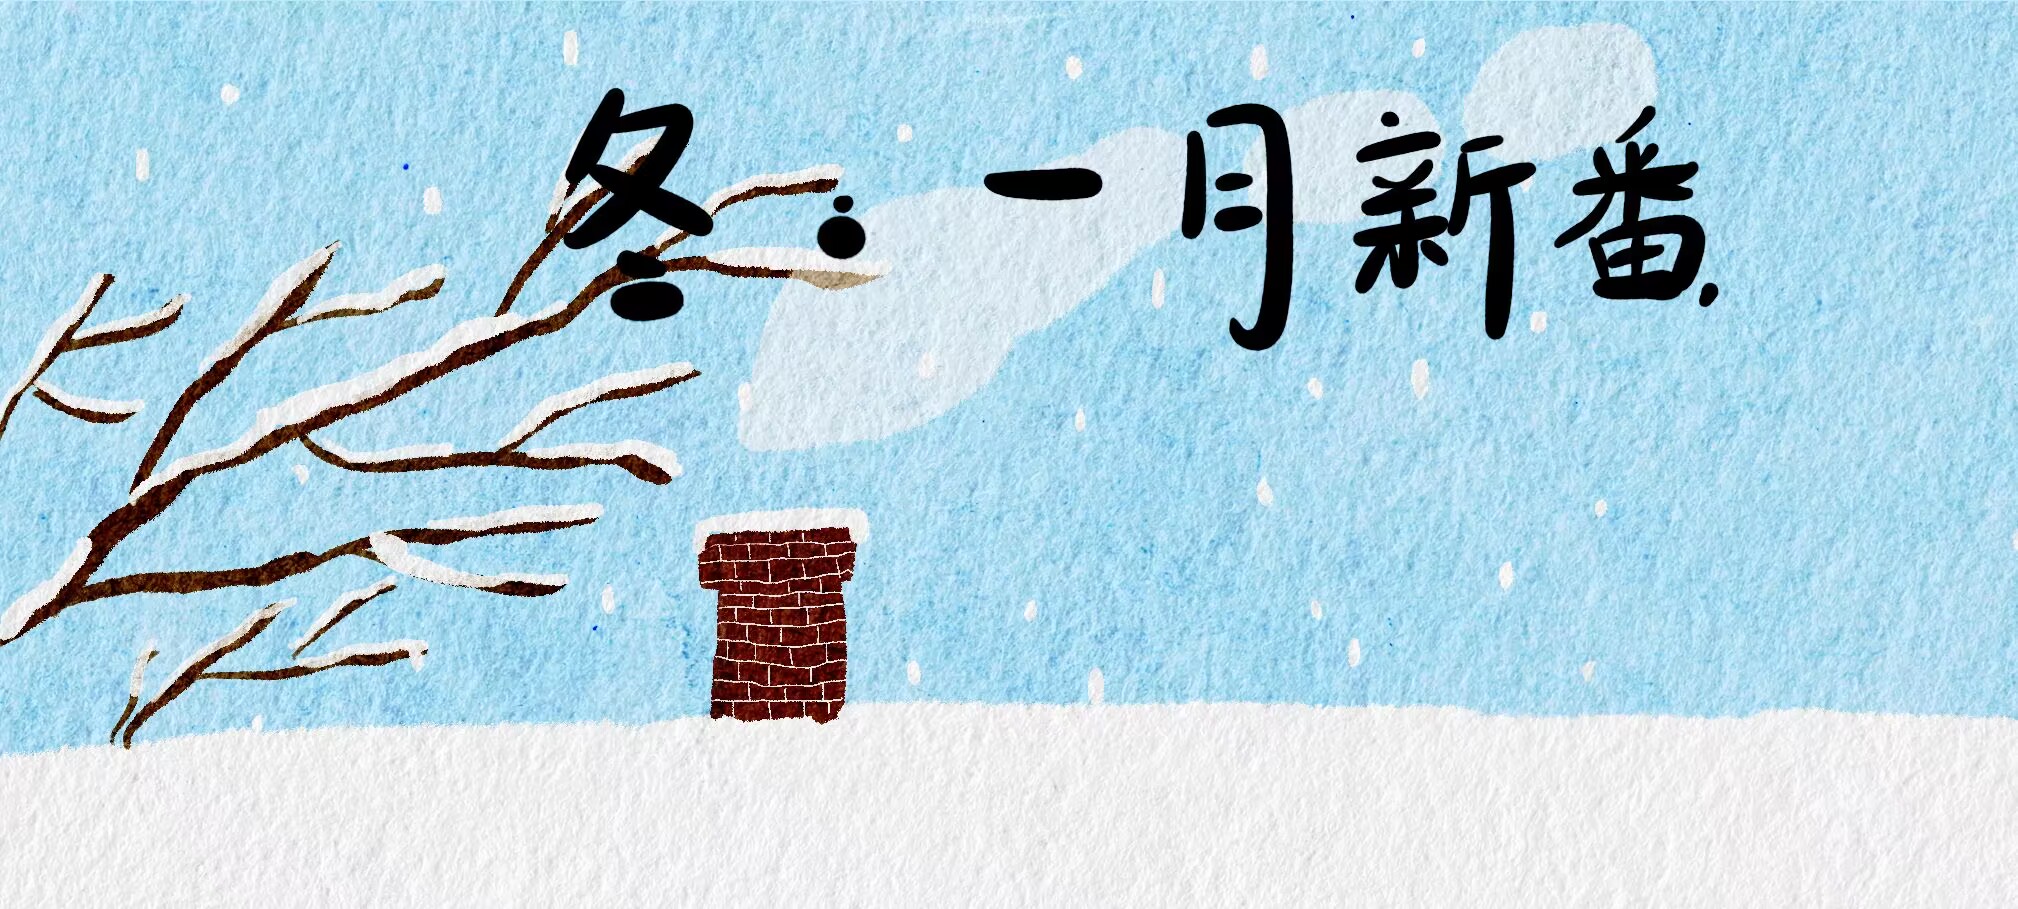 冬.一月新番.